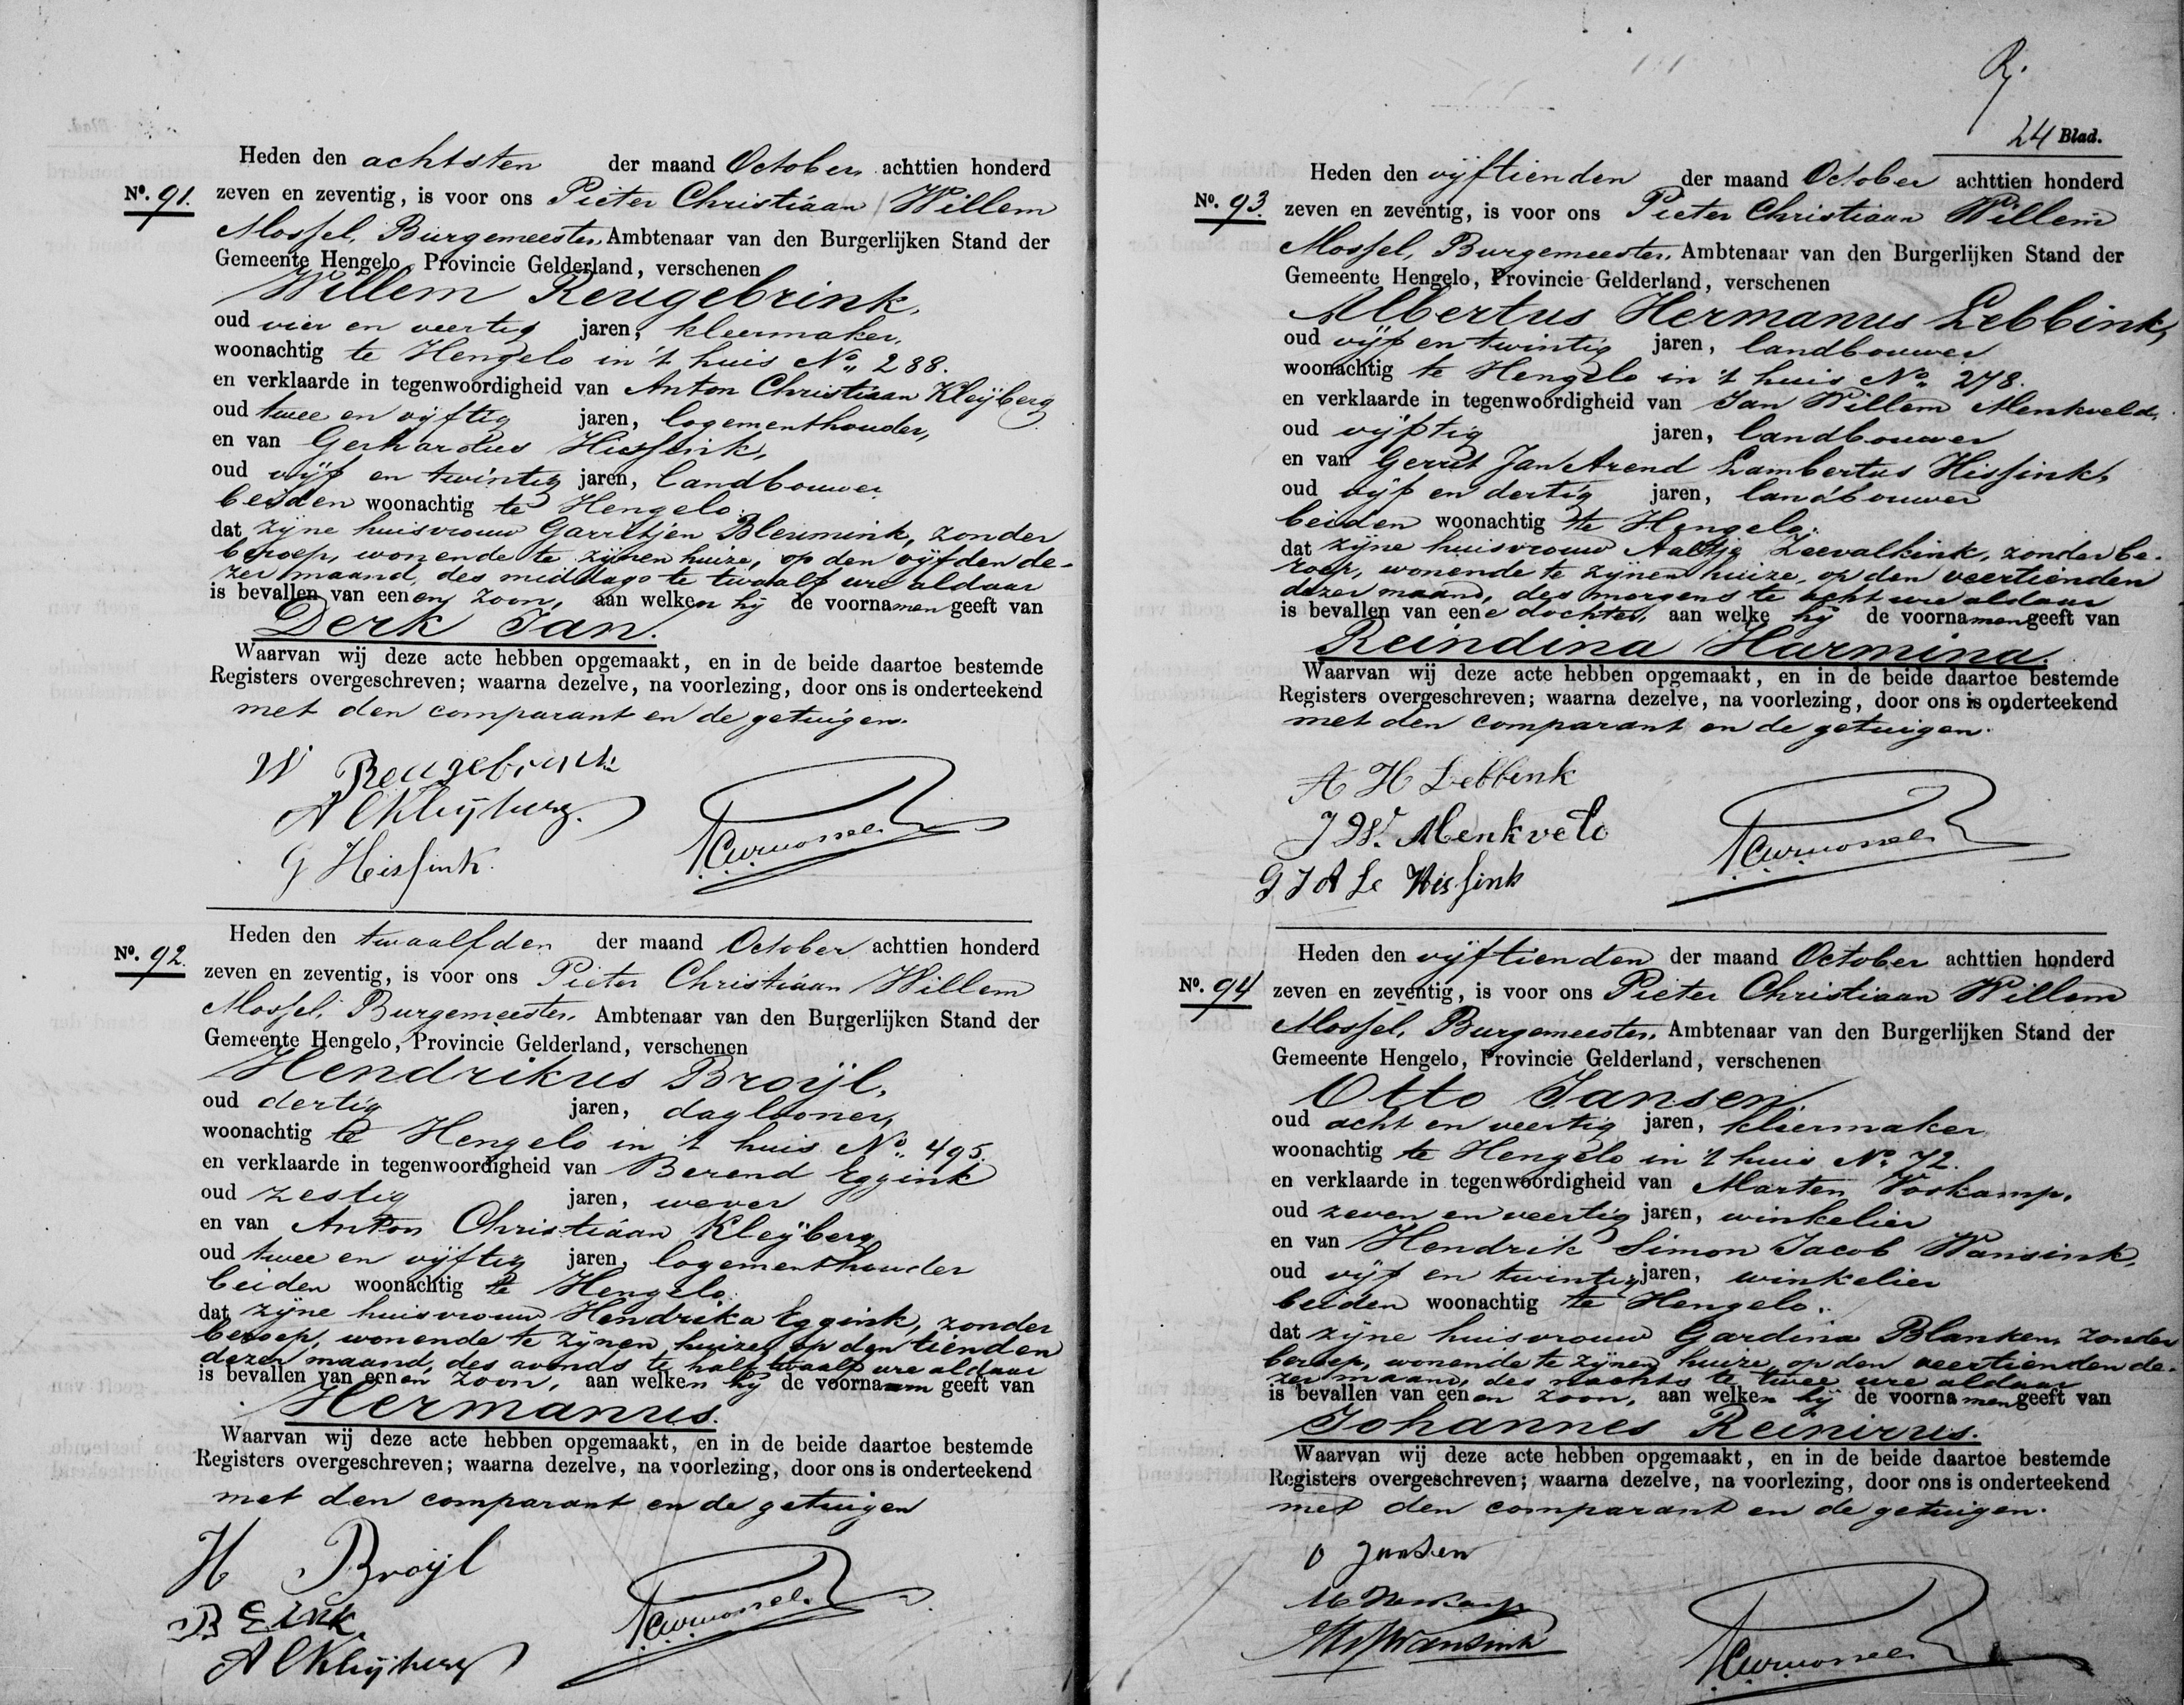 Heden den achtsten der maand October achttien honderd
No. 91. zeven en zeventig, is voor ons Pieter Christiaan Willem
Mossel, Burgemeester, Ambtenaar van den Burgerlijken Stand der
Gemeente Hengelo, Provincie Gelderland, verschenen
Willem Reugebrink,
oud vier en veertig jaren, kleermaker,
woonachtig te Hengelo in 't huis No. 288.
en verklaarde in tegenwoordigheid van Anton Christiaan Kleijberg
oud twee en vijftig jaren, logementhouder,
en van Gerhardus Hissink,
oud vijf en twintig jaren, landbouwer
beiden woonachtig te Hengelo.
dat zijne huisvrouw Garritjen Bleumink, zonder
beroep, wonende te zijnen huize, op den vijfden de-
zer maand, des middags te twaalf ure aldaar
is bevallen van eenen zoon, aan welken hij de voornamen geeft van
Derk Jan.
Waarvan wij deze acte hebben opgemaakt, en in de beide daartoe bestemde
Registers overgeschreven; waarna dezelve, na voorlezing, door ons is onderteekend
met den comparant en de getuigen.
W Reugebrink
A C Kleijberg.
G Hissink.
PCWMossel
Heden den twaalfden der maand October achttien honderd
No. 92. zeven en zeventig, is voor ons Pieter Christiaan Willem
Mossel, Burgemeester, Ambtenaar van den Burgerlijken Stand der
Gemeente Hengelo, Provincie Gelderland, verschenen
Hendrikus Broijl,
oud dertig jaren, daglooner,
woonachtig te Hengelo in 't huis No. 495.
en verklaarde in tegenwoordigheid van Berend Eggink
oud zestig jaren, wever
en van Anton Christiaan Kleijberg
oud twee en vijftig jaren, logementhouder
beiden woonachtig te Hengelo.
dat zijne huisvrouw Hendrika Eggink, zonder
beroep, wonende te zijnen huize, op den tienden
dezer maand, des avonds te half twaalf ure aldaar
is bevallen van eenen zoon, aan welken hij de voornaam geeft van
Hermanus.
Waarvan wij deze acte hebben opgemaakt, en in de beide daartoe bestemde
Registers overgeschreven; waarna dezelve, na voorlezing, door ons is onderteekend
met den comparant en de getuigen
H Broijl
B Eink
A C Kleijberg
PCWMossel
24 Blad.
Heden den vijftienden der maand October achttien honderd
No. 93. zeven en zeventig, is voor ons Pieter Christiaan Willem
Mossel, Burgemeester, Ambtenaar van den Burgerlijken Stand der
Gemeente Hengelo, Provincie Gelderland, verschenen
Albertus Hermanus Lebbink,
oud vijf en twintig jaren, landbouwer
woonachtig te Hengelo in 't huis No. 278.
en verklaarde in tegenwoordigheid van Jan Willem Menkveld,
oud vijftig jaren, landbouwer
en van Gerrit Jan Arend Lambertus Hissink,
oud vijf en dertig jaren, landbouwer
beiden woonachtig te Hengelo.
dat zijne huisvrouw Aaltje Zeevalkink, zonder be-
roep, wonende te zijnen huize, op den veertienden
dezer maand, des morgens te acht ure aldaar
is bevallen van eene dochter, aan welke hij de voornamen geeft van
Reindina Harmina.
Waarvan wij deze acte hebben opgemaakt, en in de beide daartoe bestemde
Registers overgeschreven; waarna dezelve, na voorlezing, door ons is onderteekend
met den comparant en de getuigen.
A H Lebbink
J W. Menkveld
G J A L Hissink
PCWMossel
Heden den vijftienden der maand October achttien honderd
No. 94 zeven en zeventig, is voor ons Pieter Christiaan Willem
Mossel, Burgemeester, Ambtenaar van den Burgerlijken Stand der
Gemeente Hengelo, Provincie Gelderland, verschenen
Otto Jansen
oud acht en veertig jaren, kleermaker
woonachtig te Hengelo in 't huis No. 72.
en verklaarde in tegenwoordigheid van Marten Voskamp,
oud zeven en veertig jaren, winkelier
en van Hendrik Simon Jacob Wansink,
oud vijf en twintig jaren, winkelier
beiden woonachtig te Hengelo.
dat zijne huisvrouw Gardina Blanken, zonder
beroep, wonende te zijnen huize, op den veertienden de-
zer maand, des nachts te twee ure aldaar
is bevallen van eenen zoon, aan welken hij de voornamen geeft van
Johannes Reinirus.
Waarvan wij deze acte hebben opgemaakt, en in de beide daartoe bestemde
Registers overgeschreven; waarna dezelve, na voorlezing, door ons is onderteekend
met den comparant en de getuigen.
O Jansen
M Voskamp
HSJWansink
PCWMossel